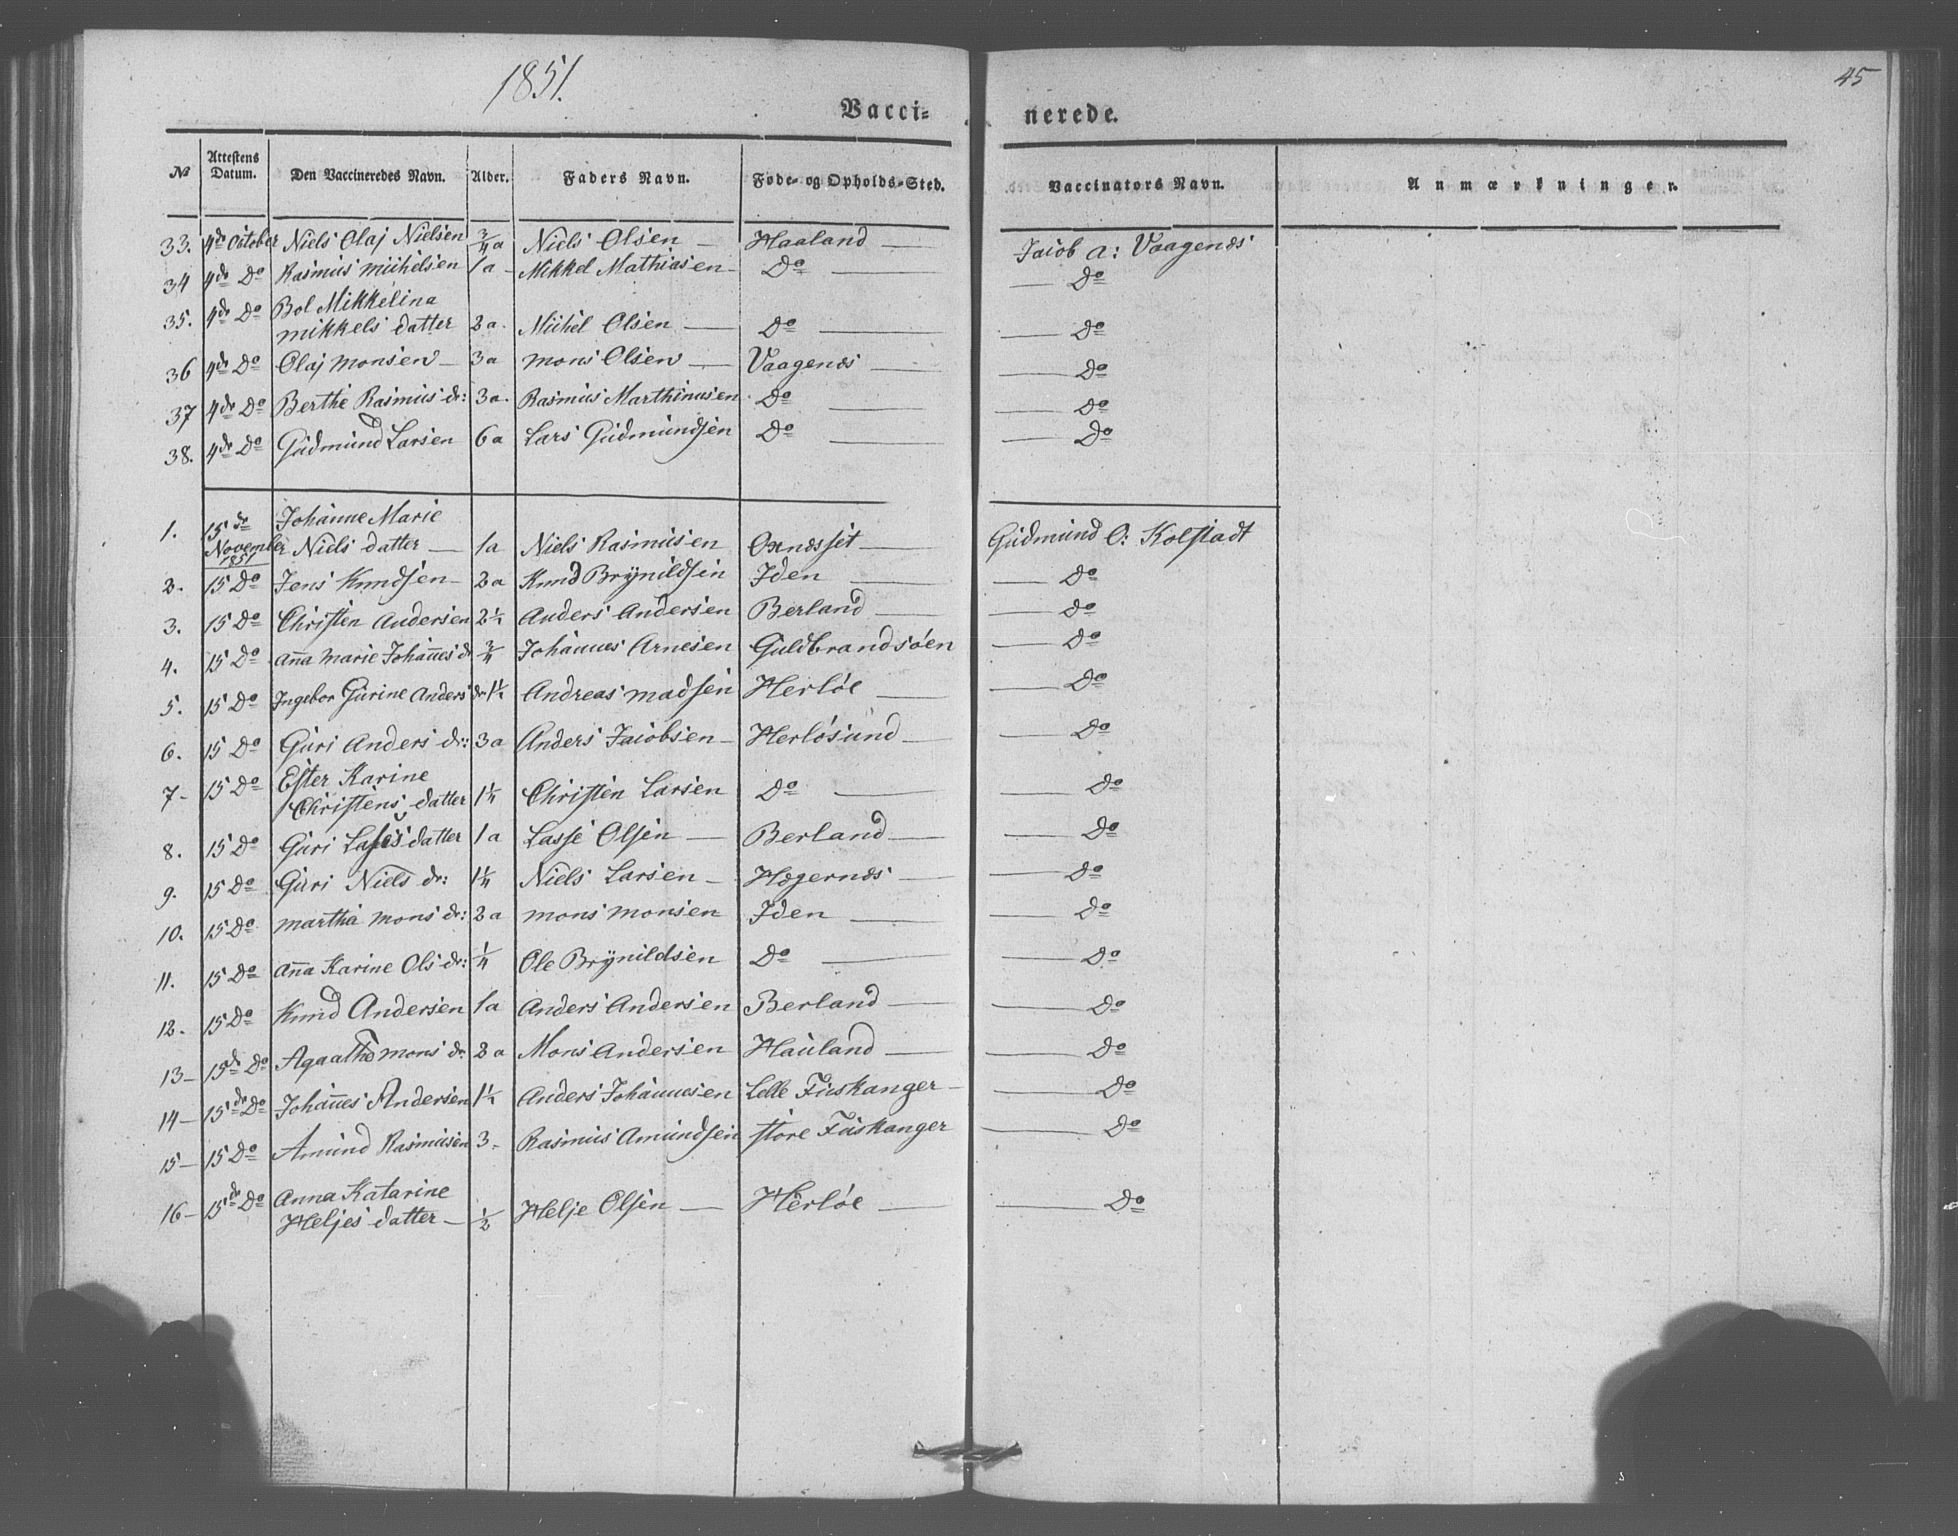 1851.
45
Vacci=nerede.
№ | Attestens Datum. | Den Vaccineredes Navn. | Alder. | Faders Navn. | Føde- og Opholds-Sted. | Vaccinators Navn. | Anmærkninger.
33. 4de October Niels Olaj Nielsen 3/4 a Niels Olsen — Haaland — Jacob A: Vaagenæs
34 4de Do Rasmus Michelsen 1a - Mikkel Mathiasen - Do — — Do
35. 4de Do Bol Mikkelina
mikkels datter 2a. Michel Olsen — Do — — Do
36 4de Do Olaj Monsen — 3a Mons Olsen — Vaagenæs — — Do
37 4de Do Berthe Rasmus dr: 3a. Rasmus Marthinusen Do — — Do
38. 4de Do Gudmund Larsen 6a Lars Gudmundsen Do — — Do
1. 15de Johanne Marie
November Niels datter — 1a Niels Rasmusen Oxnæsset — Gudmund O: Kolstadt
1851
2. 15 Do Jens Knudsen - 2a Knud Brynildsen Iden — — Do
3. 15 Do Christen Andersen 2½ Anders Andersen Berland — — Do
4. 15 Do Anna Marie Johannes dr 3/4 Johannes Arnesen Guldbrandsøen — Do
5. 15 Do Ingebor Gurine Anders dr 1½ Andreas Madsen Herløe — — Do
6. 15 Do Guri Anders dr: 3a Anders Jacobsen - Herløsund — — Do
7 - 15 Do Ester Karine
Christens datter 1¼ Christen Larsen Do — — Do
8. 15 Do Guri Lasses datter 1a Lasse Olsen — Berland — — Do
9. 15 Do Guri Niels dr: 1¼ Niels Larsen - Hægernæs — — Do
10. 15 Do Martha Mons dr: 2a Mons Monsen Iden — — Do
11. 15 Do Anna Karine Ols dr: ¼ Ole Brynildsen Do — — Do
12. 15 Do Knud Andersen 1a Anders Andersen Berland — — Do
13 - 15de Do Agaatha Mons dr 2a Mons Andersen Hauland — — Do
14 - 15de Do Johannes Andersen 1½ Anders Johannesen Lelle Fuskanger - — Do
15 - 15 Do Amund Rasmusen 3 - Rasmus Amundsen store Fuskanger — Do
16 - 15de Do Anna Katarine
Heljes datter — ½ Helje Olsen — Herløe — — Do